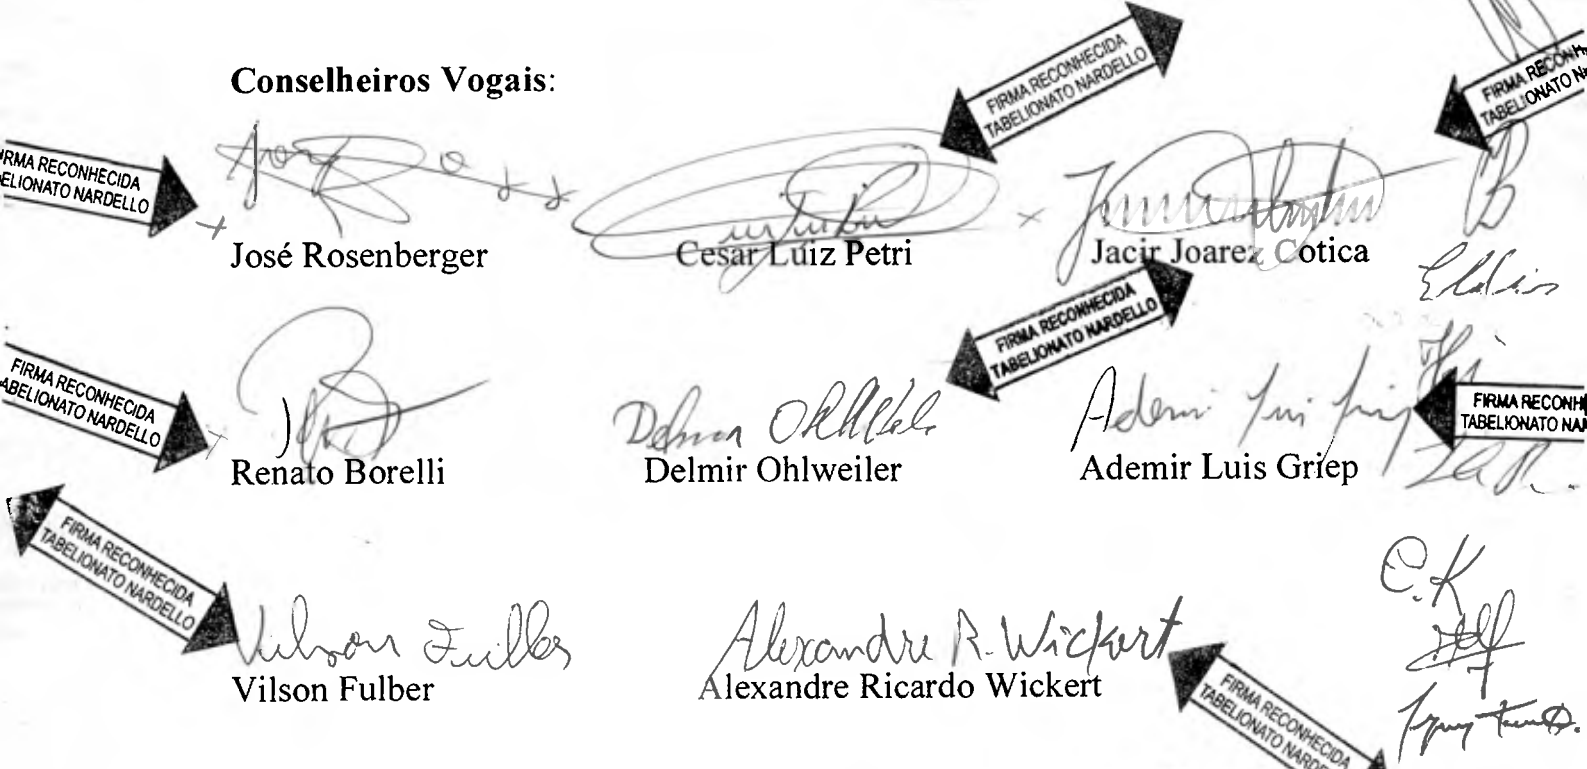 Conselheiros Vogais:
FIRMA RECONHECIDA
TABELIONATO NARDELLO
FIRMA RECONH
TABELIONATO N
IRMA RECONHECIDA
ELIONATO NARDELLO
José Rosenberger Cesar Luiz Petri Jacir Joarez Cotica
FIRMA RECONHECIDA
TABELIONATO NARDELLO
FIRMA RECONHECIDA
ABELIONATO NARDELLO
FIRMA RECONH
TABELIONATO NA
Renato Borelli Delmir Ohlweiler Ademir Luis Griep
FIRMA RECONHECIDA
TABELIONATO NARDELLO
C.K
Alexandre R. Wickert
Vilson Fulber Alexandre Ricardo Wickert
FIRMA RECONHECIDA
TABELIONATO NARDE